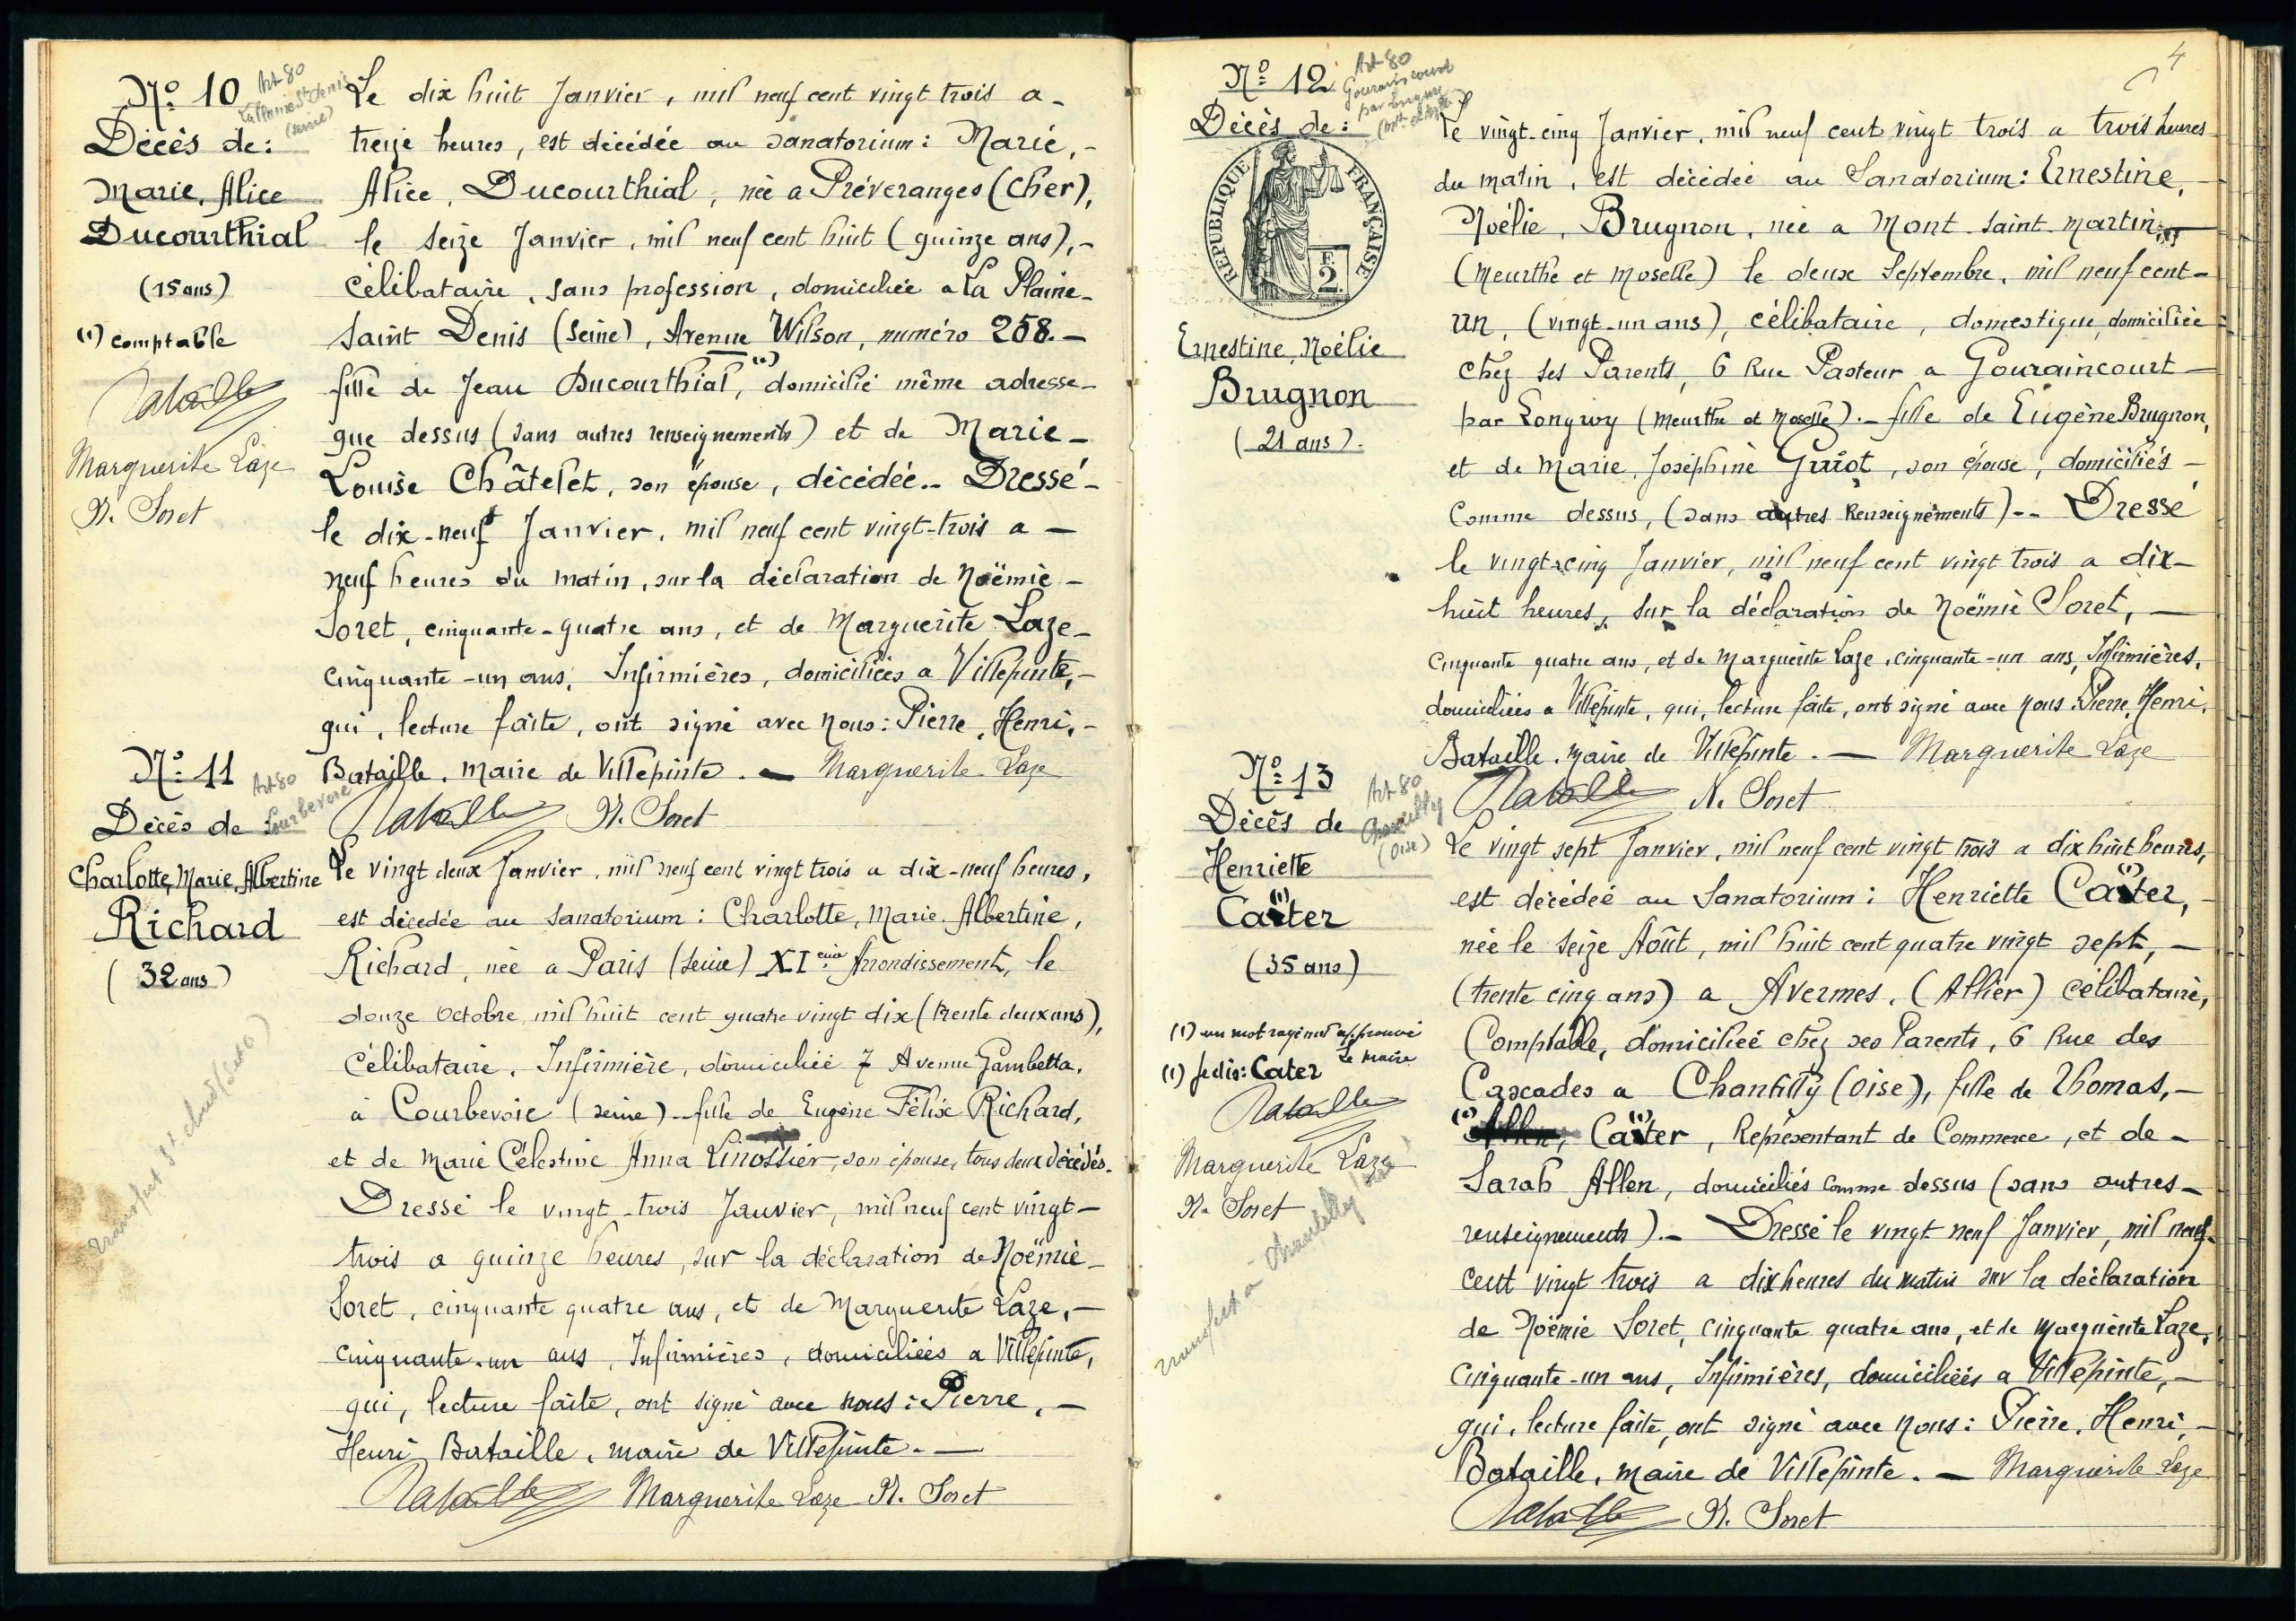 Nº 10
Art 80
La Plaine St Denis
(Seine)
Décès de:
Marie, Alice
Ducourthial
(15 ans)
(1) comptable
Bataille
Marguerite Laze
N. Soret
Le dix huit Janvier, mil neuf cent vingt trois a-
treize heures, est décédée au sanatorium: Marie,-
Alice, Ducourthial, née a Préveranges (Cher),
le seize Janvier, mil neuf cent huit (quinze ans),-
célibataire, sans profession, domiciliée a La Plaine-
Saint Denis (Seine), Avenue Wilson, numéro 258.-
fille de Jean Ducourthial, (1) domicilié même adresse-
que dessus (sans autres renseignements) et de Marie-
Louise Châtelet, son épouse, décédée.- Dressé-
le dix-neuf Janvier, mil neuf cent vingt-trois a -
neuf heures du matin, sur la déclaration de Noëmie-
Soret, cinquante-quatre ans, et de Marguerite Laze-
cinquante-un ans, Infirmières, domiciliées a Villepinte,-
qui, lecture faite, ont signé avec nous: Pierre, Henri,-
Bataille, maire de Villepinte.- Marguerite Laze
Bataille N. Soret
Nº 11
Art 80
Courbevoie
Décès de:
Charlotte, Marie, Albertine
Richard
(32 ans)
Le vingt deux Janvier, mil neuf cent vingt trois a dix-neuf heures,
est décédée au Sanatorium: Charlotte, Marie, Albertine,
Richard, née a Paris (Seine) XIeme Arrondissement, le
douze Octobre mil huit cent quatre vingt dix (trente deux ans),
célibataire, Infirmière, domiciliée 7 Avenue Gambetta,
à Courbevoie (Seine)-fille de Eugène Félix Richard,
et de Marie Célestine Anna Linossier, son épouse, tous deux décédés.
Dressé le vingt-trois Janvier, mil neuf cent vingt-
trois a quinze heures, sur la déclaration de Noëmie-
Soret, cinquante quatre ans, et de Marguerite Laze,-
cinquante-un ans, Infirmières, domiciliées a Villepinte,
qui, lecture faite, ont signé avec nous: Pierre,-
Henri Bataille, maire de Villepinte.-
Bataille Marguerite Laze N. Soret
4
Nº 12
Art 80
Gouraincourt
par Longwy
Décès de:
RÉPUBLIQUE FRANÇAISE
F.
2
Ernestine, Noélie
Brugnon
(21 ans).
Le vingt-cinq Janvier, mil neuf cent vingt trois a trois heures
du matin, est décédée au Sanatorium: Ernestine,-
Noélie, Brugnon, née a Mont-Saint-Martin,
(Meurthe et Moselle) le deux Septembre, mil neuf cent-
un, (vingt-un ans), célibataire, domestique, domiciliée
chez ses Parents, 6 Rue Pasteur a Gouraincourt-
par Longwy (Meurthe et Moselle).-fille de Eugène Brugnon,
et de Marie, Joséphine Guiot, son épouse, domiciliés-
comme dessus, (sans autres Renseignements)-- Dressé
le vingt-cinq Janvier, mil neuf cent vingt trois a dix-
huit heures, sur la déclaration de Noëmie Soret,-
cinquante quatre ans, et de Marguerite Laze, cinquante-un ans, Infirmières,
domiciliées a Villepinte, qui, lecture faite, ont signé avec nous: Pierre, Henri,
Bataille, maire de Villepinte.- Marguerite Laze
Bataille N. Soret
Nº 13
Art 80
Chantilly
(Oise)
Décès de
Henriette
(1)
Caiter
(35 ans)
(1) un mot rayé nul approuvé
Le maire
(1) je dis: Cater
Bataille
Marguerite Laze
N. Soret
transfert a Chantilly
Le vingt sept Janvier, mil neuf cent vingt trois a dix huit heures,
est décédée au Sanatorium: Henriette Caiter, (1)
née le seize Août, mil huit cent quatre vingt sept,-
(trente cinq ans) a Avermes, (Allier) célibataire,
Comptable, domiciliée chez ses Parents, 6 Rue des
Cascades a Chantilly (Oise), fille de Thomas,-
(1) Allen, Caiter (1), Représentant de Commerce, et de-
Sarah Allen, domiciliés comme dessus (sans autres-
renseignements).- Dressé le vingt neuf Janvier, mil neuf-
cent vingt trois a dix heures du matin sur la déclaration
de Noëmie Soret, cinquante quatre ans, et de Marguerite Laze,
cinquante-un ans, Infirmières, domiciliées a Villepinte,-
qui, lecture faite, ont signé avec nous: Pierre, Henri,-
Bataille, maire de Villepinte.- Marguerite Laze
Bataille N. Soret